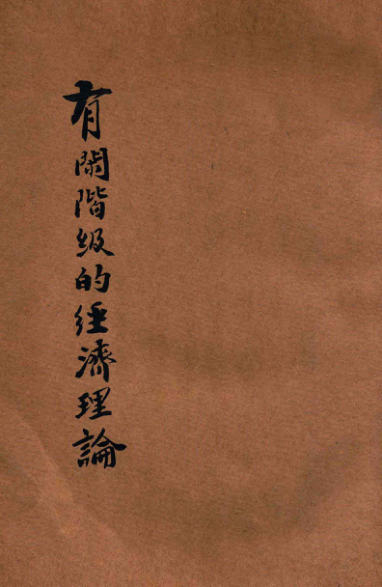 有閑階級的經濟理論